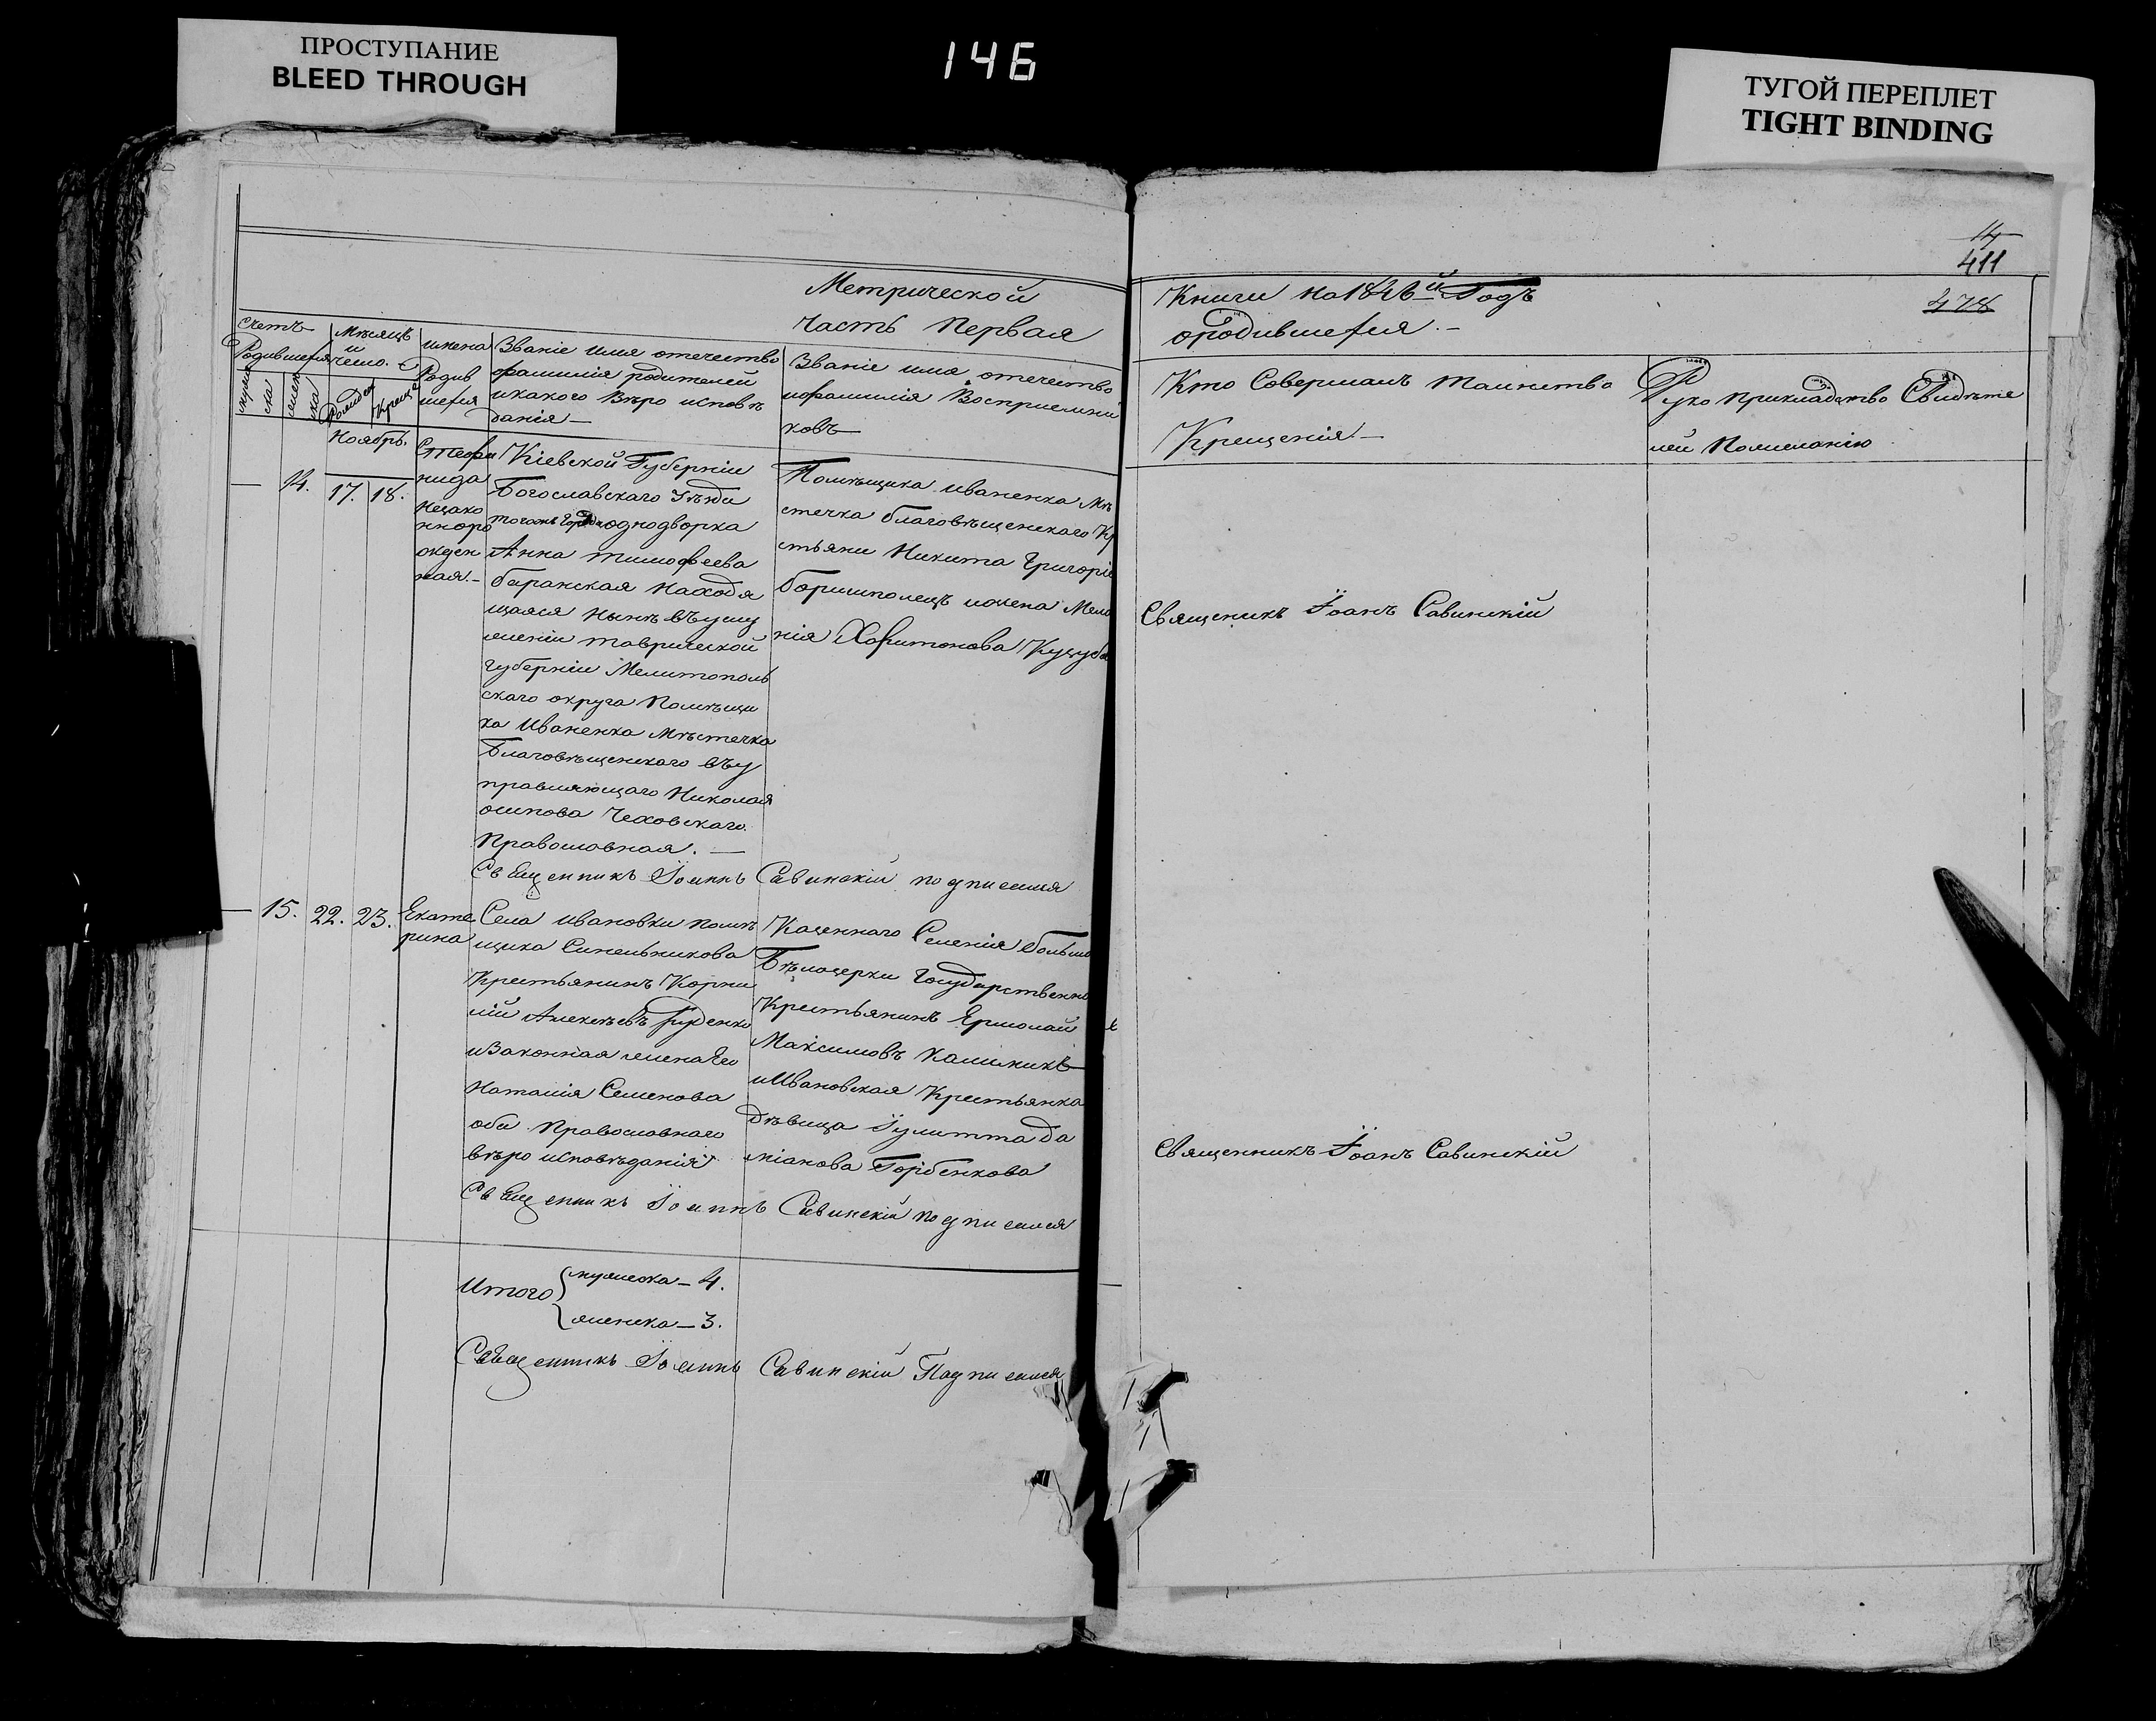 ПРОСТУПАНИЕ
BLEED THROUGH
146
ТУГОЙ ПЕРЕПЛЕТ
TIGHT BINDING
14
411
478
Метрической
часть первая
Книги на 1846й Годъ
ородившехся.
счетъ
Родившехся
мѣсяцъ
и
число.
имена
Родив
шехся
Званіе имя отечество
фамилія родителей
икакого Вѣро исповѣ
данія
Званіе имя отечество
ифамилія Восприемни
ковъ
Кто Совершалъ таинство
Крещенія
Руко прикладство Свидѣте
лей Пожеланію
Ноябрь.
14. 17. 18.
Стефа
нида
Незако
нноро
жден
ная.
Кіевской Губерніи
Богославскаго Уѣзда
тогожъ Города однодворка
Анна тимофеева
баранская находя
щаяся нынѣ въуслу
женіи таврической
губерніи Мелитополь
скаго округа Помѣщи
ка Иваненка мѣстечка
Благовѣщенскаго въу
правляющаго Николая
осипова Чеховскаго.
Православная.
Помѣщика иваненка мѣ
стечка благовѣщенскаго Кр
стьяни Никита Григоріе
боришполецъ ижена Мела
нія Харитонова Куцуба
Священикъ Іоанъ Савинскій
Священникъ Іоаннъ Савинскій подписался
15. 22. 23.
Екате
рина
Села ивановки помѣ
щика Синельникова
Крестьянинъ Корни
лій Алексѣевъ Руденко
изаконная жена Его
Наталія Семенова
оба Православнаго
вѣро исповѣданія
Казеннаго Селенія больше
Бѣлозерки Государственны
Крестьянинъ Ермолай
Максимовъ Калиникъ
иИвановская Крестьянка
дѣвица Іулитта да
міанова Горбенкова
Священникъ Іоанъ Савинскій
Священникъ Іоаннъ Савинскій подписался
Итого
мужеска — 4.
женска — 3.
Священникъ Іоаннъ Савинскій Подписался